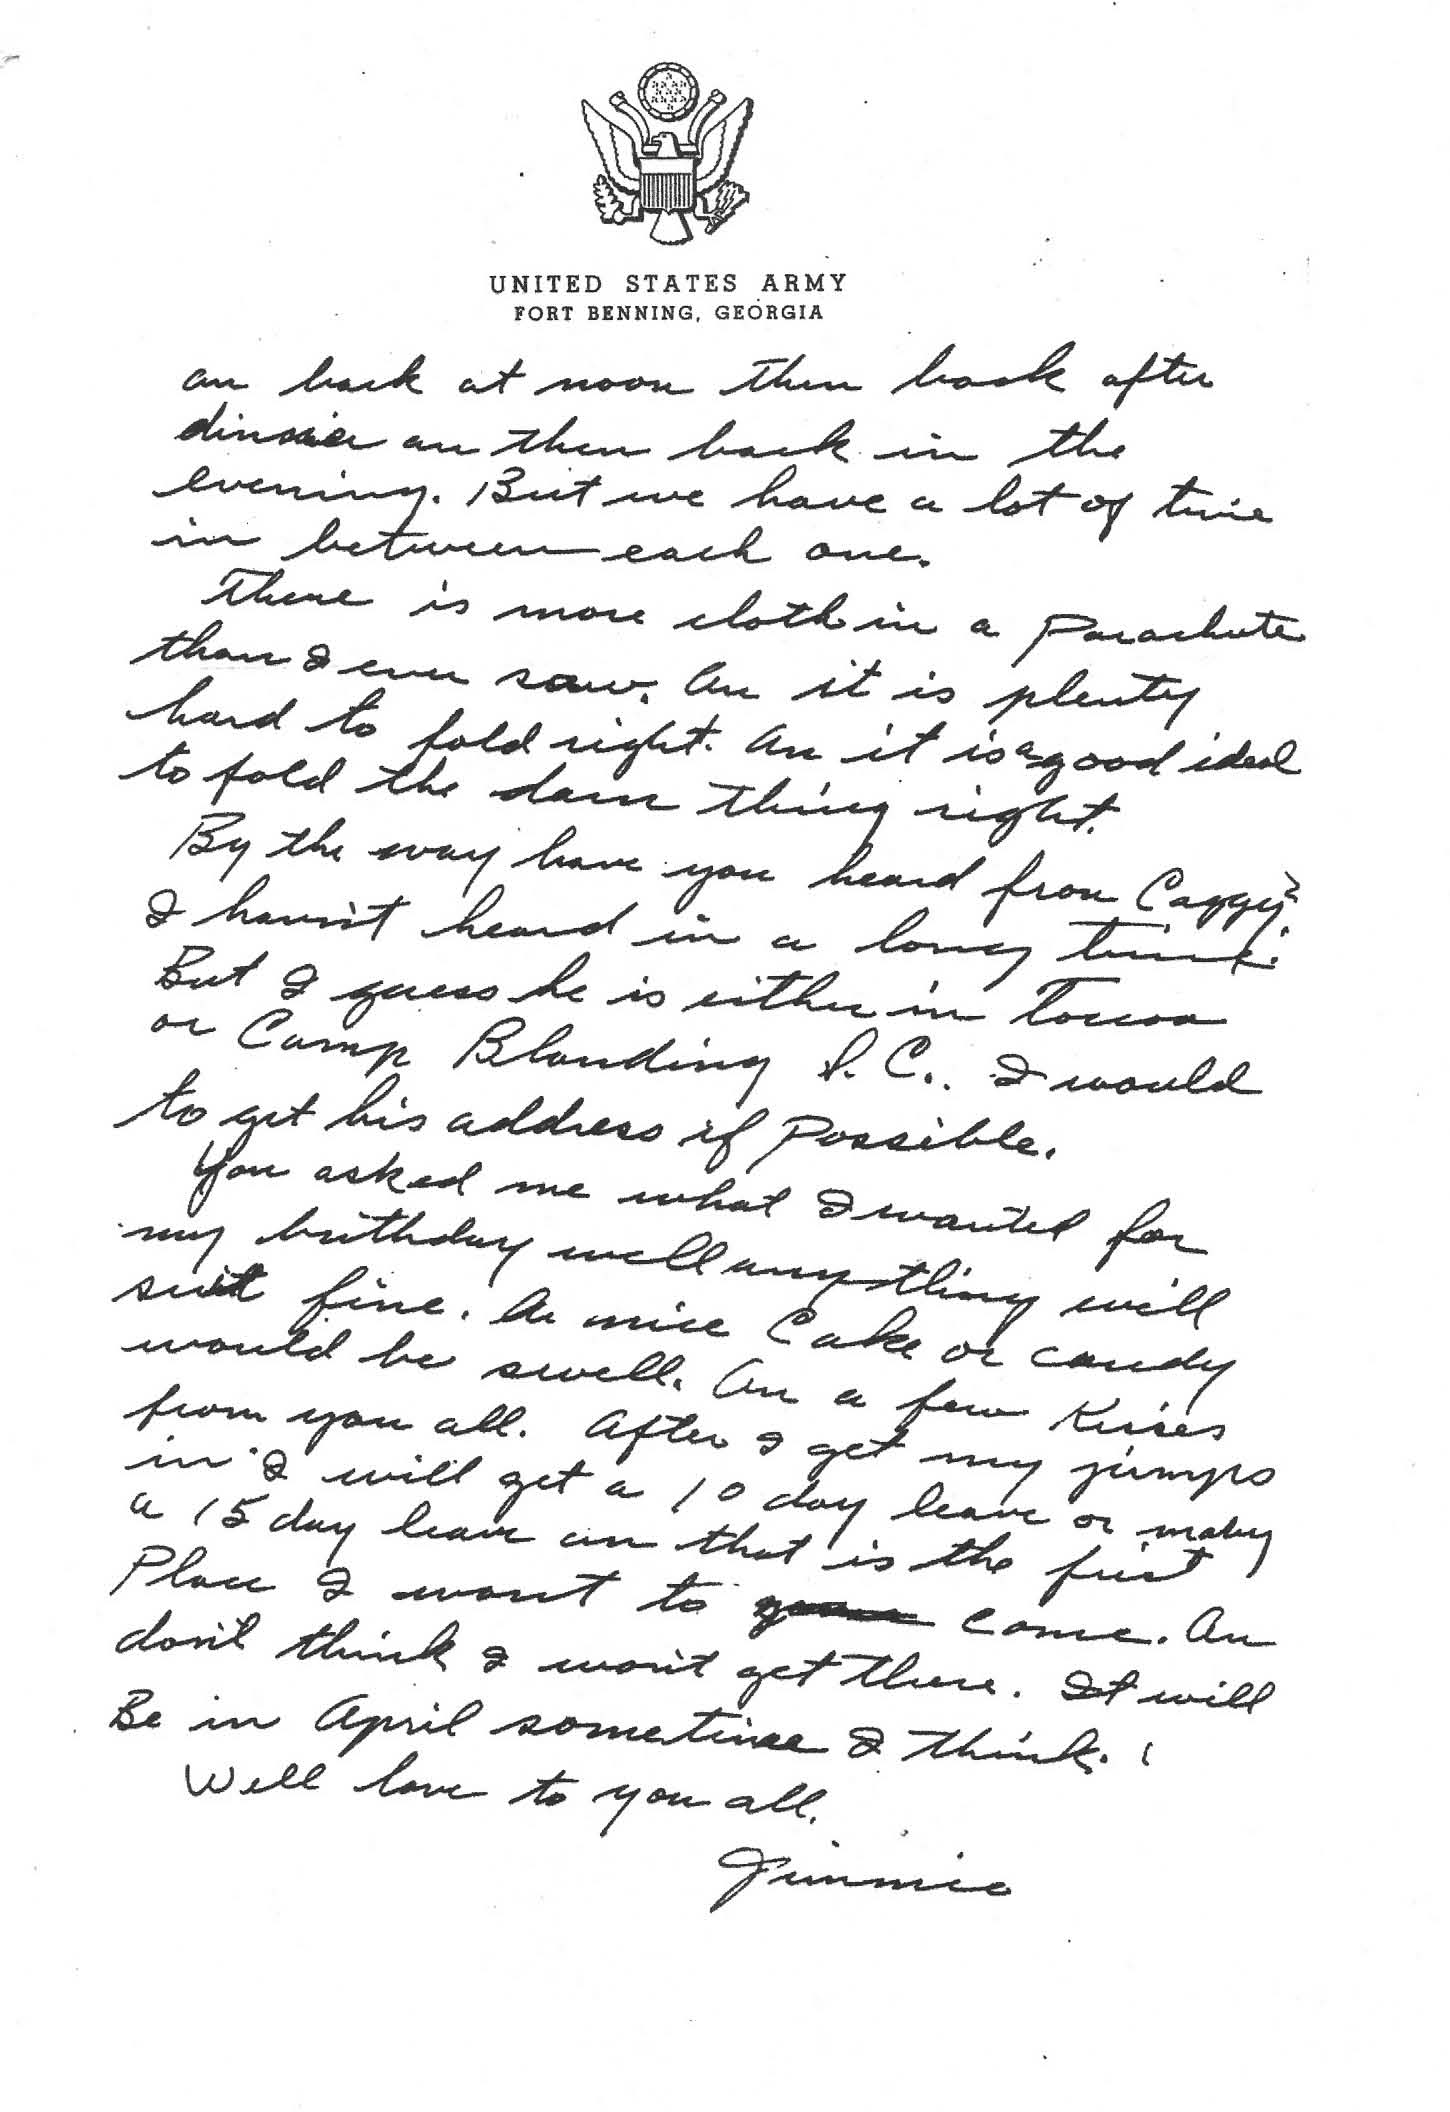 UNITED STATES ARMY
FORT BENNING, GEORGIA
an back at noon then back after
dinner an then back in the
evening. But we have a lot of time
in between each one.
There is more cloth in a Parachute
than I ever saw. An it is plenty
hard to fold right. An it is a good ideal
to fold the darn thing right.
By the way have you heard from Caggy?
I havin't heard in a long time.
But I guess he is either in Toccoa
or Camp Blanding S.C.. I would
to get his address if Possible.
You asked me what I wanted for
my birthday well anything will
suit fine. A nice Cake or candy
would be swell. An a few Kisses
from you all. After I get my jumps
in I will get a 10 day leave or maby
a 15 day leave an that is the first
Place I want to come. An
don't think I won't get there. It will
Be in April sometime I think.
Well love to you all.
Jimmie